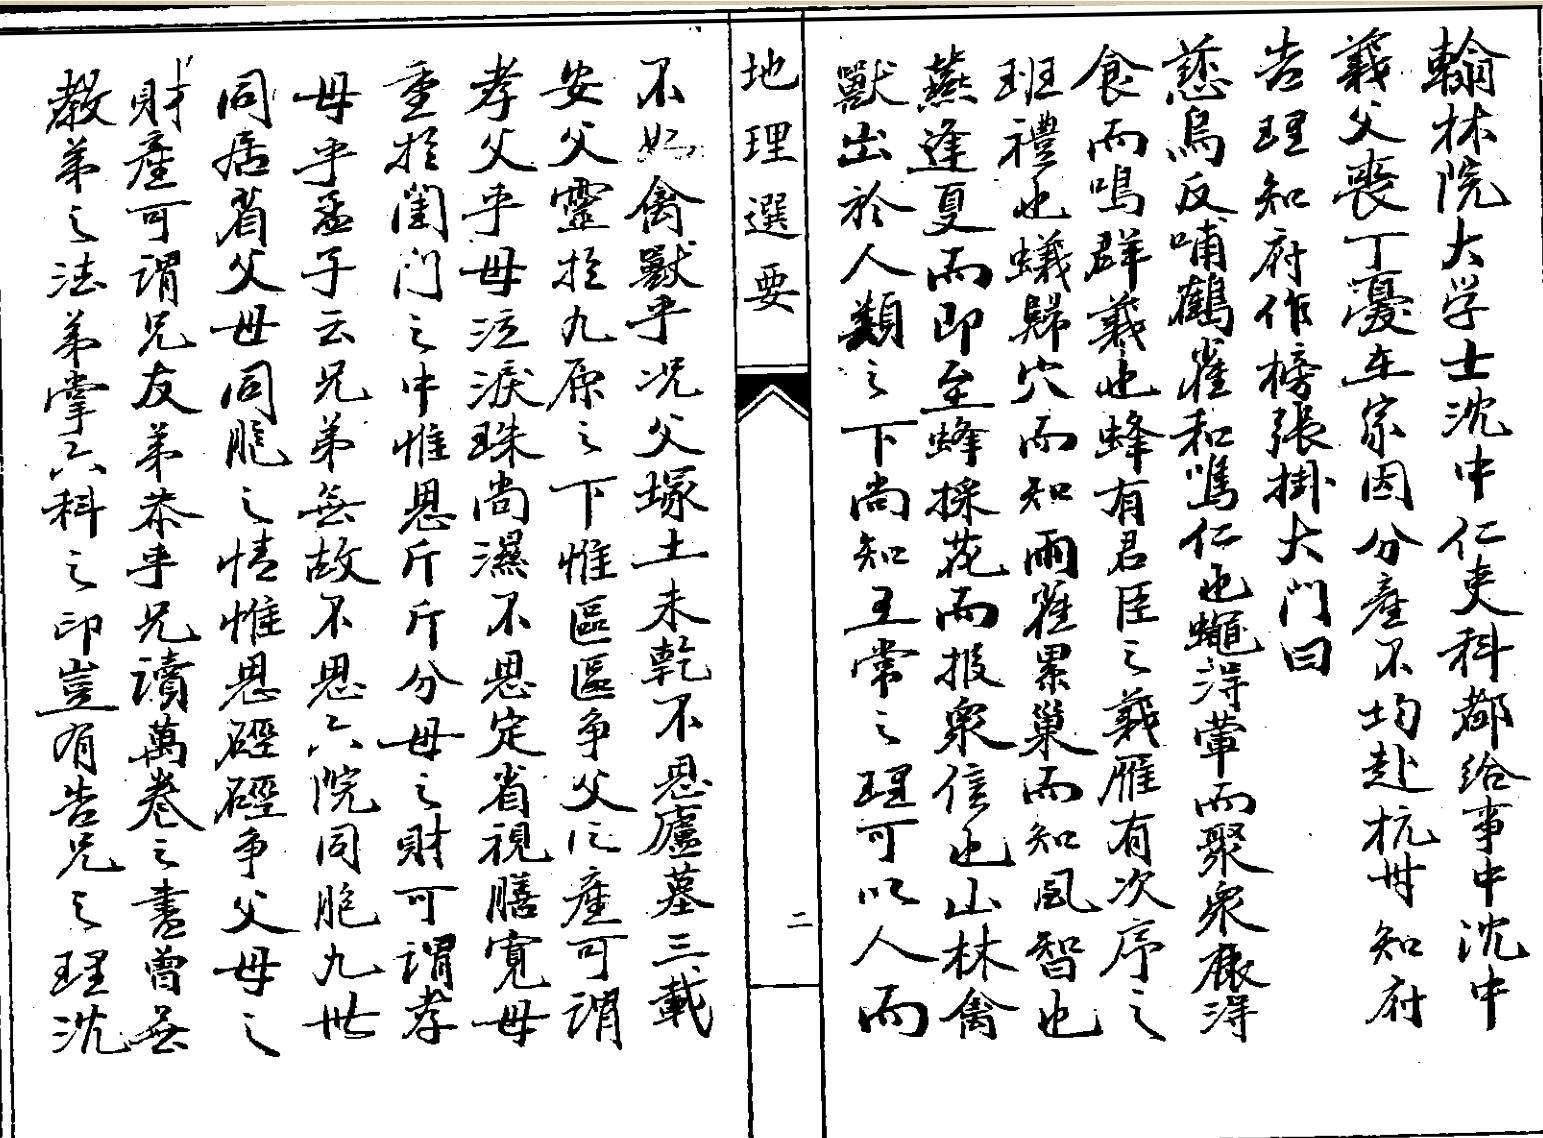 翰林院大学士沈中仁吏科都给事中沈中
義父喪丁憂在家因分產不均赴杭州知府
告理知府作榜張掛大门曰
慈烏反哺鶴雀和鳴仁也蠅淂葷而聚衆鹿淂
食而鳴群義也蜂有君臣之義雁有次序之
班禮也蟻歸穴而知雨雀累巢而知風智也
燕逢夏而即至蜂採花而报衆信也山林禽
獸出於人類之下尚知五常之理可以人而
地理選要
二
不如禽獸乎况父塚土未乾不思廬墓三載
安父靈於九原之下惟區區争父之產可謂
孝父乎母泣淚珠尚濕不思定省視膳寬母
重於闺门之中惟思斤斤分母之財可謂孝
母乎孟子云兄弟無故不思六院同胞九世
同居省父母同胞之情惟思硜硜争父母之
財產可謂兄友弟恭乎兄讀萬卷之書曾無
教弟之法弟掌六科之印豈有告兄之理沈